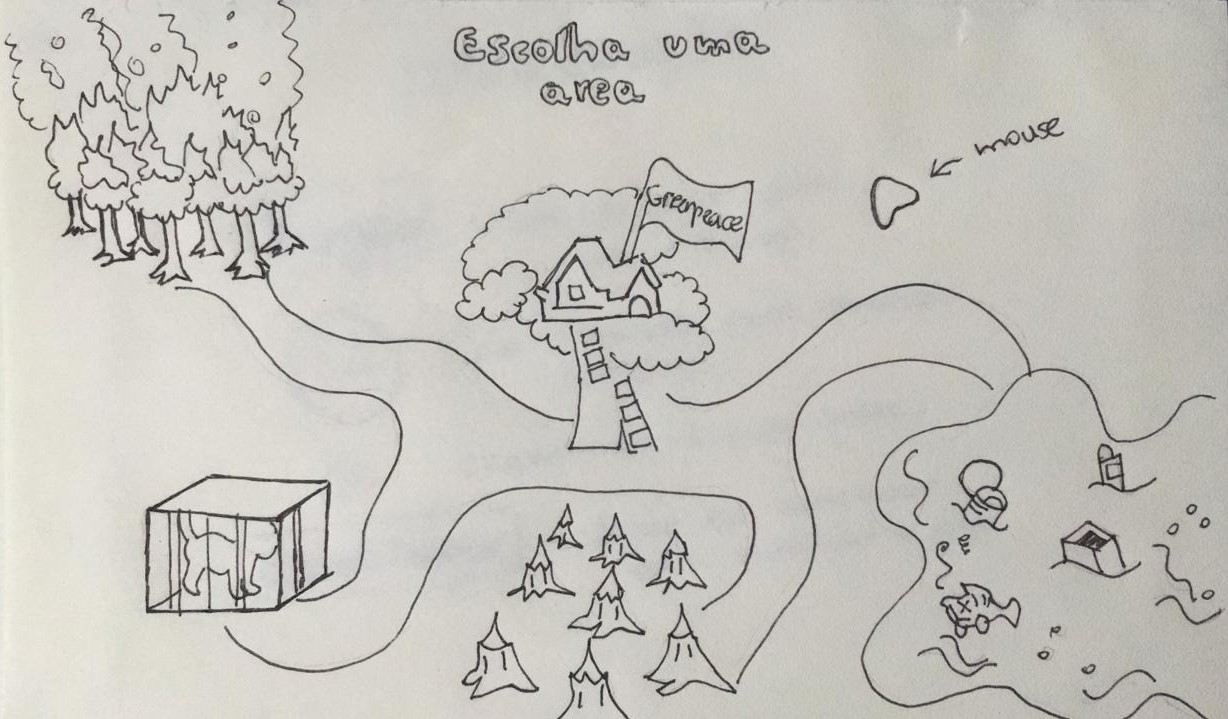 Escolha uma
area
mouse
Greenpeace